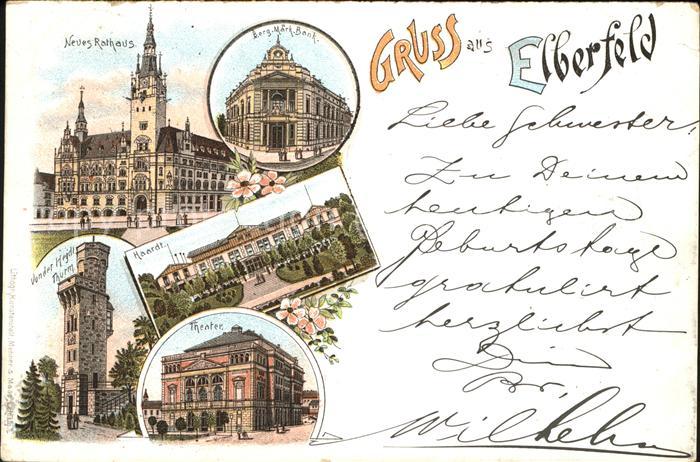 Neues Rathaus.
Berg. Märk. Bank.
GRUSS aus Elberfeld
Haardt.
Von der Heydt
Thurm
Theater.
Liebe Schwester!
Zu Deinem
heutigen
Geburtstage
gratulirt
herzlichst
Dein
Br.
Wilhelm